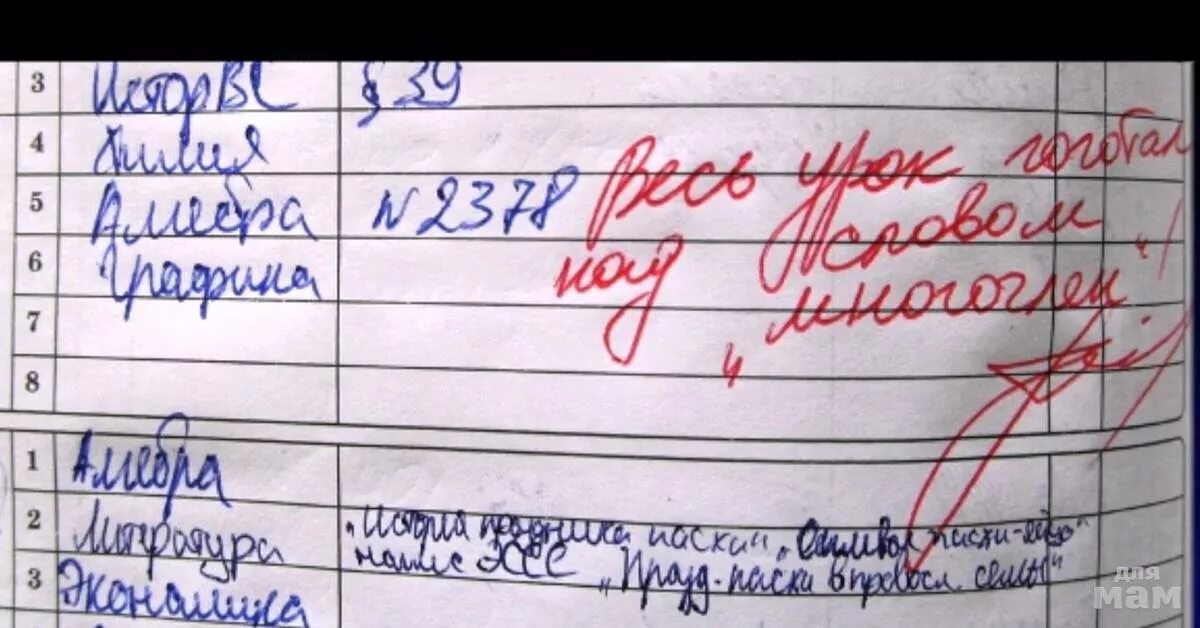 3 ИсторВС § 39
4 Химия
5 Алгебра N 2378
6 Графика
7
8
Весь урок гоготал
над словом
"многочлен"!
1 Алгебра
2 Литература "История праздника пасхи" "Символ пасхи-яйцо"
напис ЭССЕ "Празд. пасхи в правосл. семье"
3 Экономика
для
мам